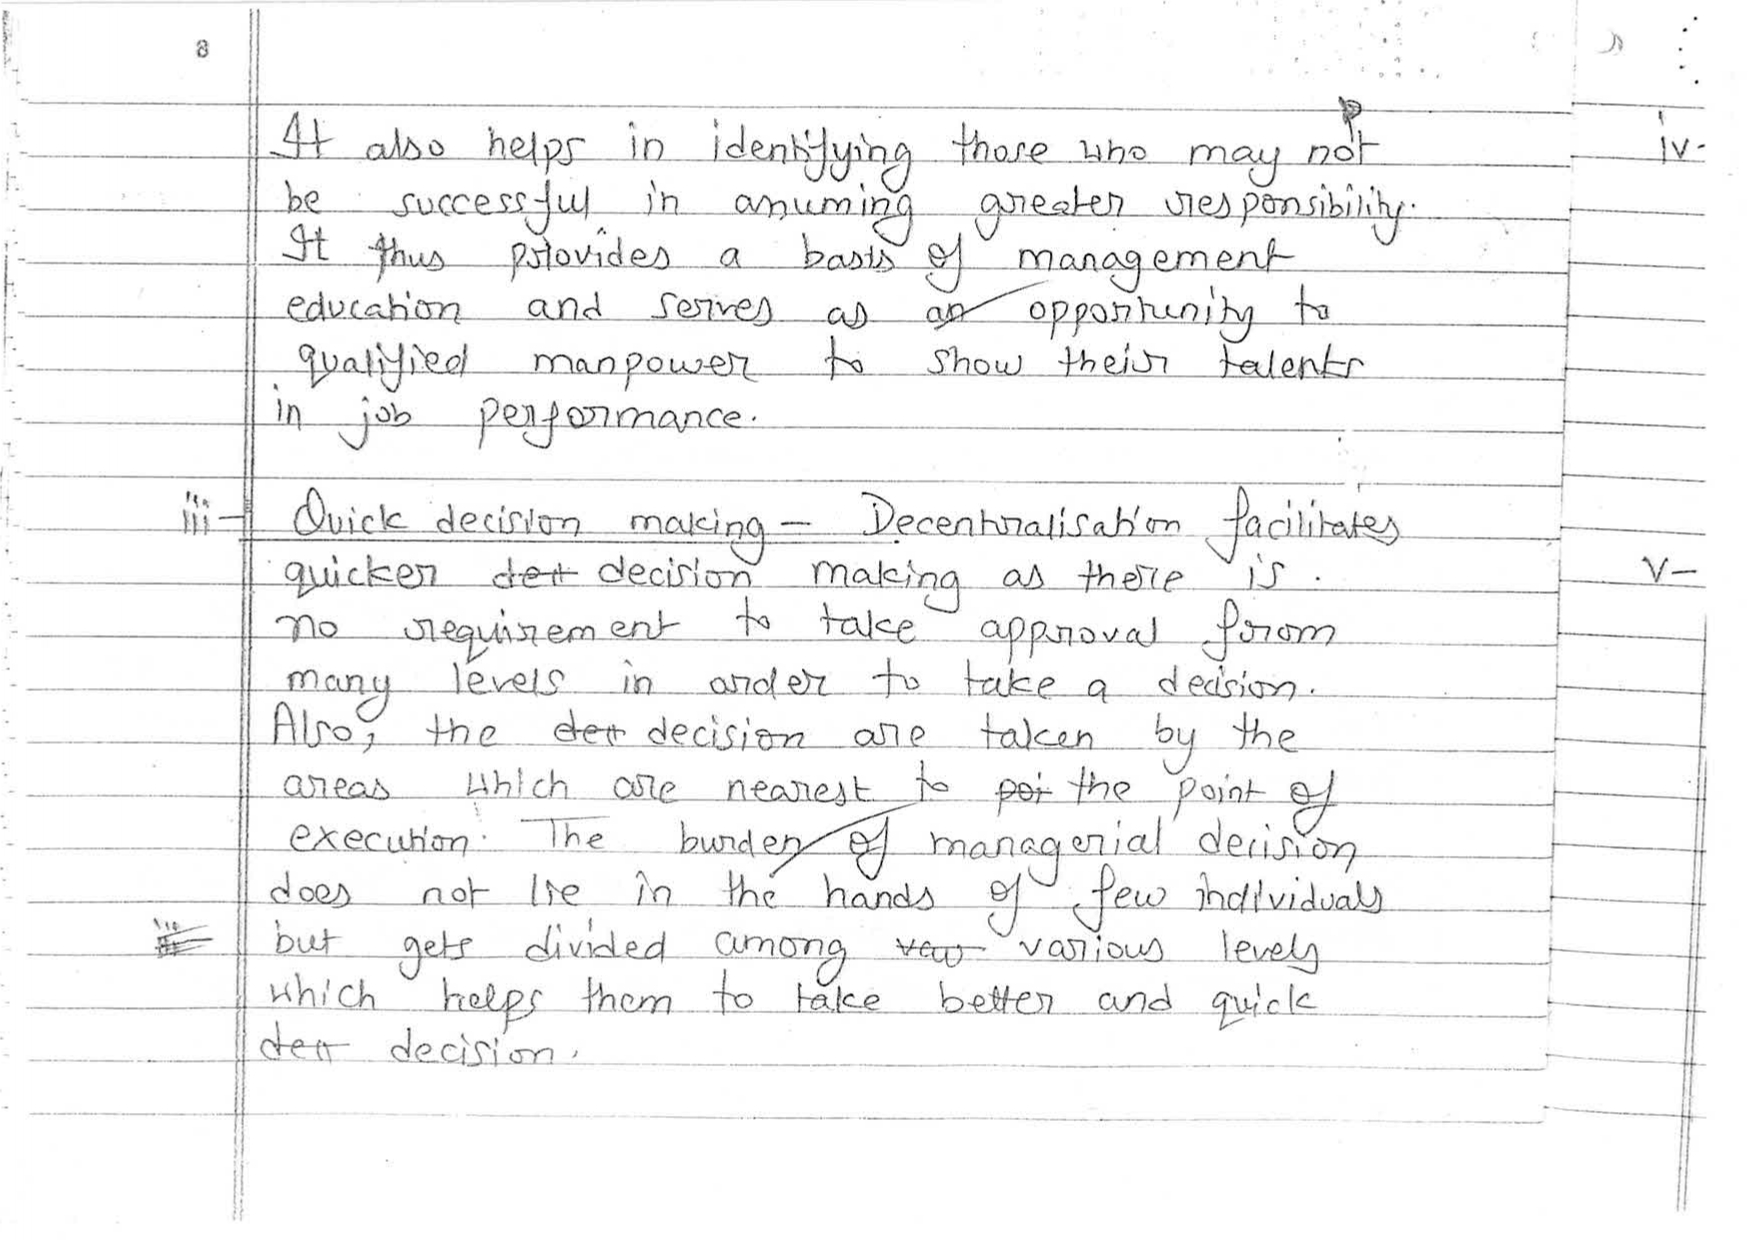 8
It also helps in identifying those who may not
be successful in assuming greater responsibility.
It thus provides a basis of management
education and serves as an opportunity to
qualified manpower to show their talents
in job performance.
iii- Quick decision making - Decentralisation facilitates
quicker deci decision making as there is.
no requirement to take approval from
many levels in order to take a decision.
Also, the deci decision are taken by the
areas which are nearest to poi the point of
execution. The burden of managerial decision
does not lie in the hands of few individuals
but gets divided among vaw various levels
which helps them to take better and quick
deci decision.
iv-
V-